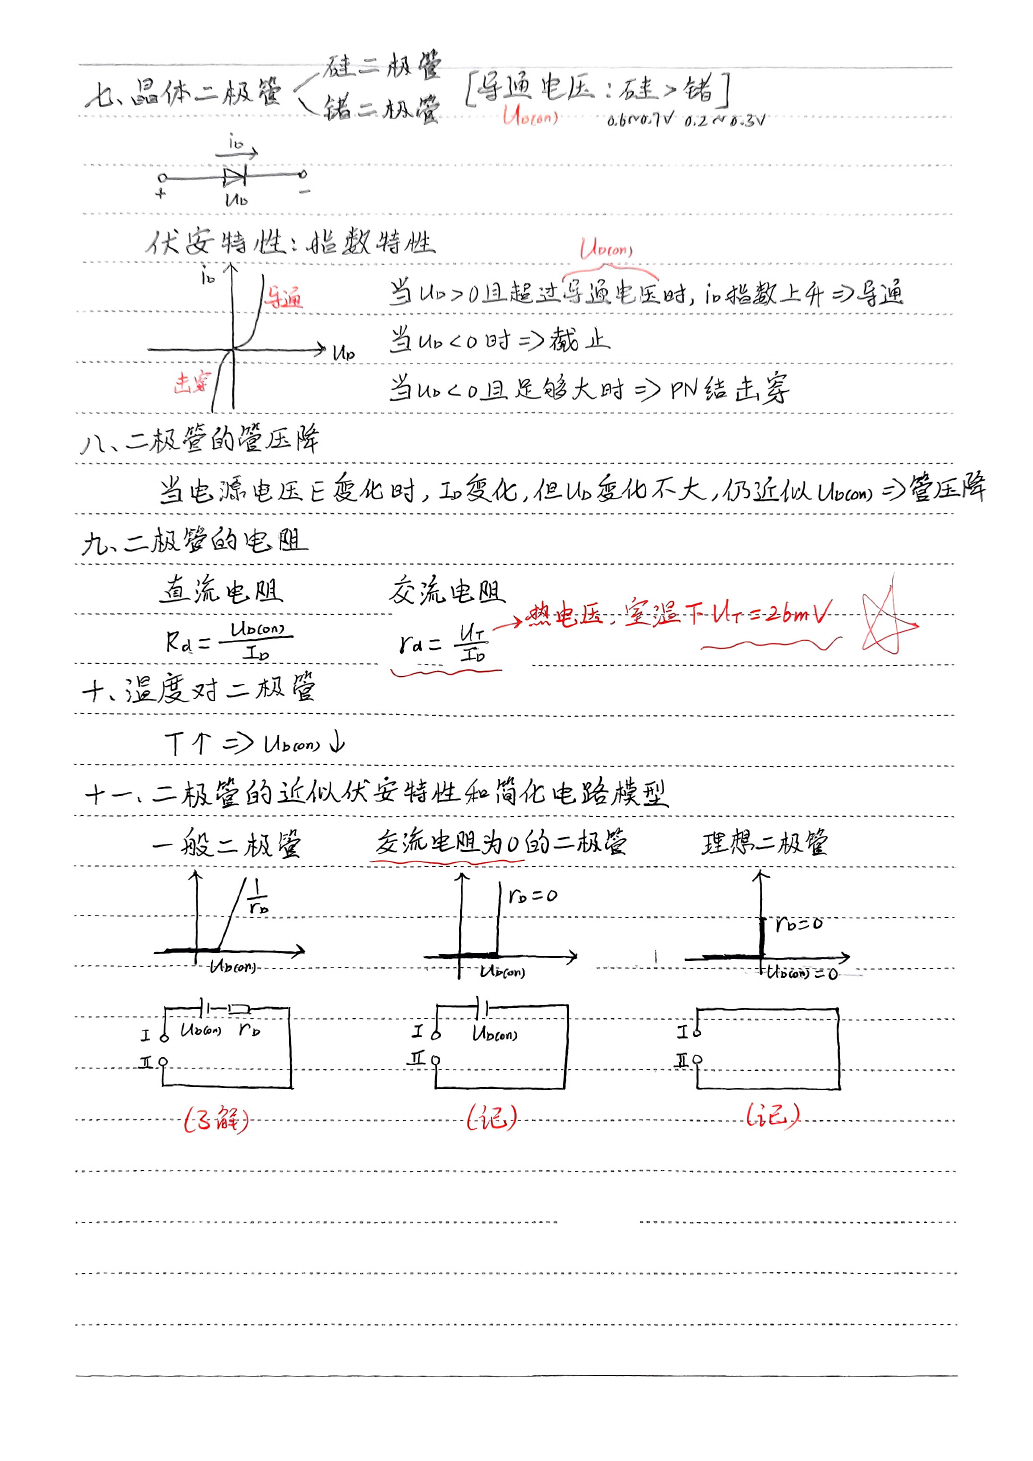 硅二极管
七、晶体二极管 [导通电压:硅>锗]
锗二极管 U_D(on) 0.6~0.7V 0.2~0.3V
i_D
+ −
U_D
伏安特性:指数特性
U_D(on)
i_D
当U_D>0且超过导通电压时,i_D指数上升⇒导通
导通
当U_D<0时⇒截止
U_D
击穿
当U_D<0且足够大时⇒PN结击穿
八、二极管的管压降
当电源电压E变化时,I_D变化,但U_D变化不大,仍近似U_D(on)⇒管压降
九、二极管的电阻
直流电阻 交流电阻
R_d=U_D(on)/I_D r_d=U_T/I_D →热电压,室温下U_T=26mV
十、温度对二极管
T↑⇒U_D(on)↓
十一、二极管的近似伏安特性和简化电路模型
一般二极管 交流电阻为0的二极管 理想二极管
1/r_D r_D=0 r_D=0
U_D(on) U_D(on) U_D(on)=0
I U_D(on) r_D I U_D(on) I
II II II
(了解) (记) (记)